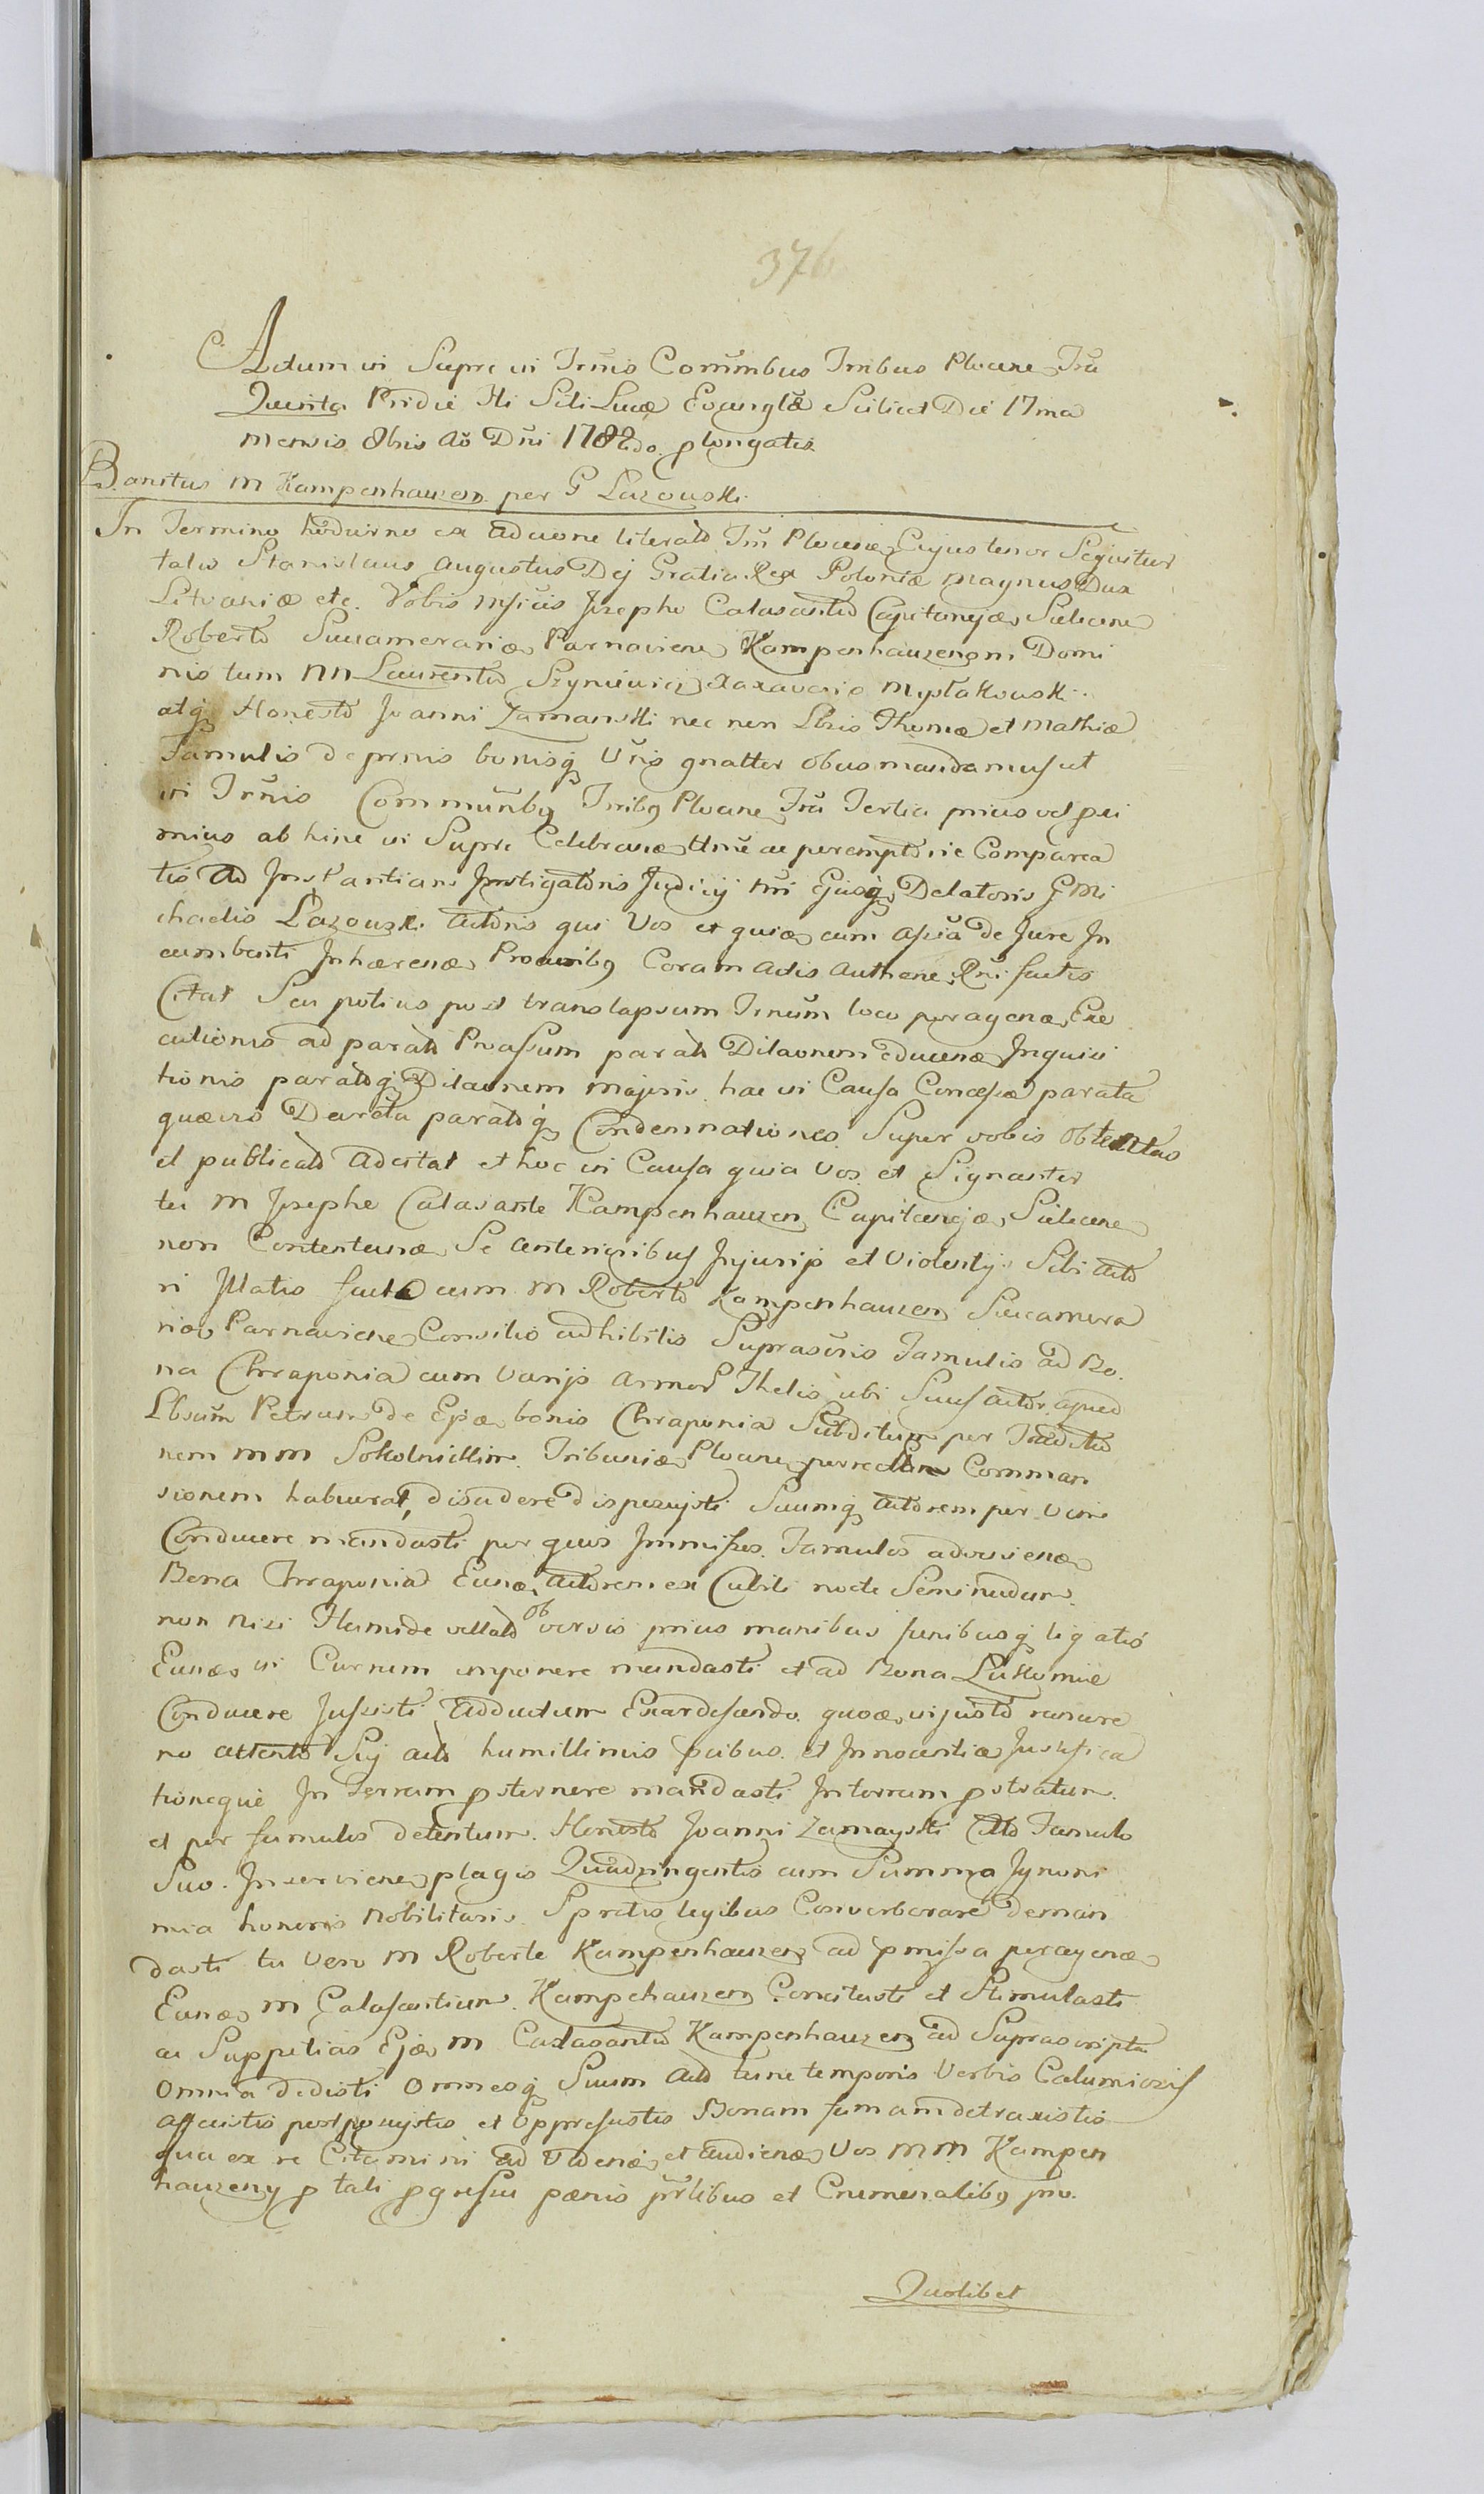 376
Actum in Supr in Trmis Commbus Trribus Plocene Fria
Quinta Pridie Fti Scti Lucæ Evanglæ Scilicet Die 17ma
mensis 8bris Ao Dni 1782do plongatis
Banitus M Kampenhauzen per G Lazowski
In Termino hodierno ex adcione literato Trri Plocenæ Cujus tenor Sequitur
talis Stanislaus Augustus Dej Gratia Rex Poloniæ Magnus Dux
Litvaniæ etc. Vobis Mficis Josepho Calasantio Capitanejdæ
Roberto Succamerario Parnaviene Kampenhauzenom Domi
nis tum NN Laurentio Szyniewicz Xaxaverio Mystakowski
atq Honesto Joanni Zamarski nec non Lbris Thomæ et Mathiæ
Famulis de prnis bonisq Vris gnalter obus mandamus ut
in Trmis Commūnbq Trribq Plocene Fria Tertia prius vel pri
mius ab hinc in Supr Celebranæ ac peremptorie Comparea
tis Ad Instantiam Instigatoris Judicij Nri Ejusq Delatoris G Mi
chaelis Lazowski Actoris qui Vos et quiæ cum Assia de Jure In
cumbenti Inhærenæ Procuribq Coram Actis Authene Rni factis
Citat Seu potius post translapsum Trnum loco peragenæ Exe
cutionis ad parata Processum parata Dilaonem educenæ Inquisi
tionis parataq Dilaonem majoris hac in Causa Concessæ parata
quævis Decreta parataq Condemnationes Super vobis obtentas
et publicato Adcitat et hoc in Causa quia Vos et Signanter
tu M Josephe Calasante Kampenhauzen Capitanejdæ
non Contentanæ Se anterioribus Injurijs et Violentijs Sibi Acto
ri Illatis facto cum M Roberto Kampenhauzen Succamera
rio Parnaviene Consilio adhibitis Suprascris Famulis ad Bo
na Chraponia cum Varijs Armor Thelis ubi Suus Actor apud
Lbrum Petrum de Ejsdæ bonis Chraponia Subditum per
nem MM Sokolnickim Tribuniæ Plocene Comman
sionem habuerat, disudere disposuisti Suumq Actorem per Vim
Conducere mandasti per quos Immissos Famulos advenienæ
Bona Chraponia Eunæ Actorem ex Cubili nocte Seminudum
non nisi Humide vellato ob versis prius manibus funibusq ligatis
Eunæ in Currum imponere mandasti et ad Bona Lukomie
Conducere Jussisti Adductum Exardescendo quoæ injusto rancore
no attento Sui Acto humillimis pcibus et Innocentiæ Justifica
tioneque In terram psternere mandasti In terram pstratum
et per famulos detentum Honesto Joanni Zamayski Cto Famulo
Suo Inserviene plagis Quadringentis cum Summa Ignomi
mia honoris Nobilitaris Spretis legibus Converberare deman
dasti tu Vero M Roberte Kampenhauzen ad pmissa peragenæ
Eunæ M Calasantium Kampehauzen Concitasti et Stimulasti
ac Suppetias Ejdæ M Calasantio Kampenhauzen ad Suprascripta
omnia dedisti omnesq Suum Acto tunc temporis Verbis Calumiosis
affecistis postposuistis et Oppressistis Bonam famam detraxistis
qua ex re Citamini ad Videnæ et Audienæ Vos MM Kampen
hauzeny p tali pgressu pænis prlibus et Criminalibq pro
Quolibet